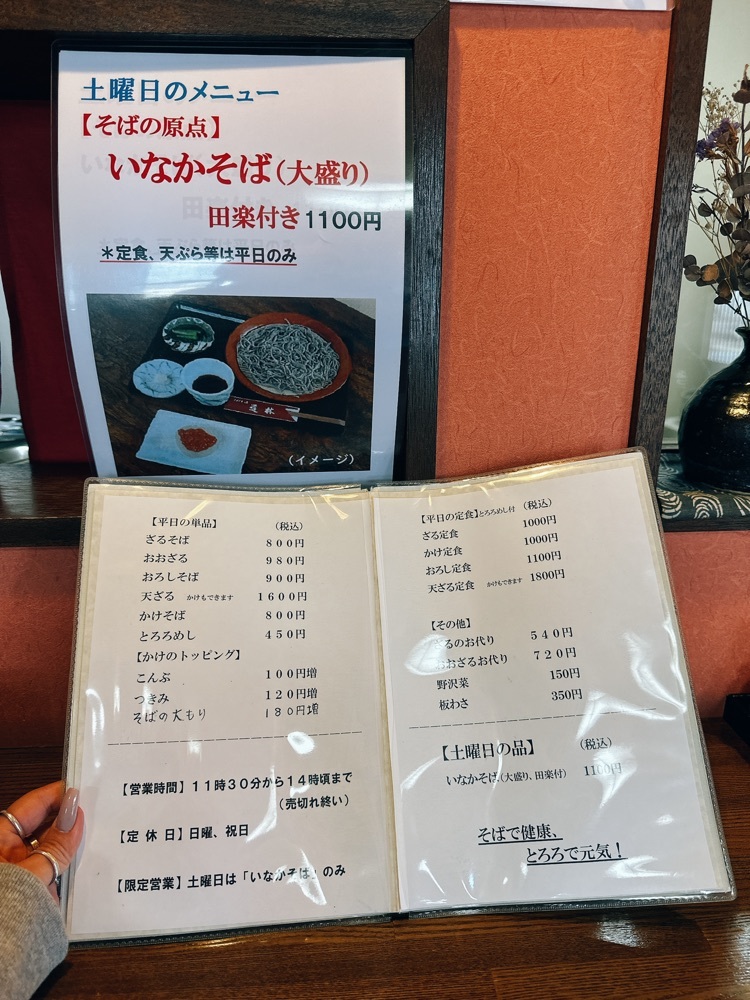 土曜日のメニュー
【そばの原点】
いなかそば(大盛り)
田楽付き1100円
＊定食、天ぷら等は平日のみ
(イメージ)
【平日の単品】 (税込)
ざるそば 800円
おおざる 980円
おろしそば 900円
天ざる かけもできます 1600円
かけそば 800円
とろろめし 450円
【かけのトッピング】
こんぶ 100円増
つきみ 120円増
そばの大もり 180円増
【営業時間】11時30分から14時頃まで
(売切れ終い)
【定 休 日】日曜、祝日
【限定営業】土曜日は「いなかそば」のみ
【平日の定食】とろろめし付 (税込)
ざる定食 1000円
かけ定食 1000円
おろし定食 1100円
天ざる定食 かけもできます 1800円
【その他】
ざるのお代り 540円
おおざるお代り 720円
野沢菜 150円
板わさ 350円
【土曜日の品】 (税込)
いなかそば(大盛り、田楽付) 1100円
そばで健康、
とろろで元気！